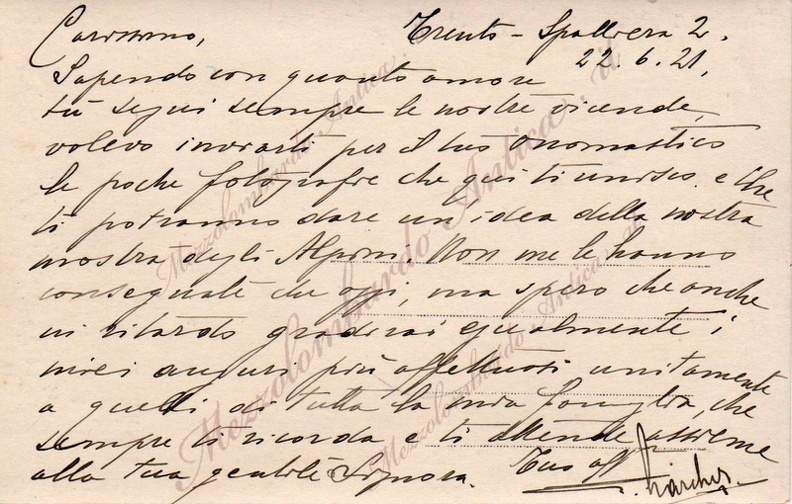 Carissimo,
Trento - Spalliera 2.
22.6.21.
Sapendo con quanto amore
tu segui sempre le nostre vicende,
volevo inviarti per il tuo onomastico
le poche fotografie che qui ti unisco e che
ti potranno dare un'idea della nostra
mostra degli Alpini. Non me le hanno
consegnate che oggi, ma spero che anche
in ritardo gradirai egualmente i
miei auguri più affettuosi unitamente
a quelli di tutta la mia famiglia, che
sempre ti ricorda e ti attende assieme
alla tua gentile Signora. Tuo aff
Mezzolombardo Antica
Mezzolombardo Antica
Mezzolombardo Antica